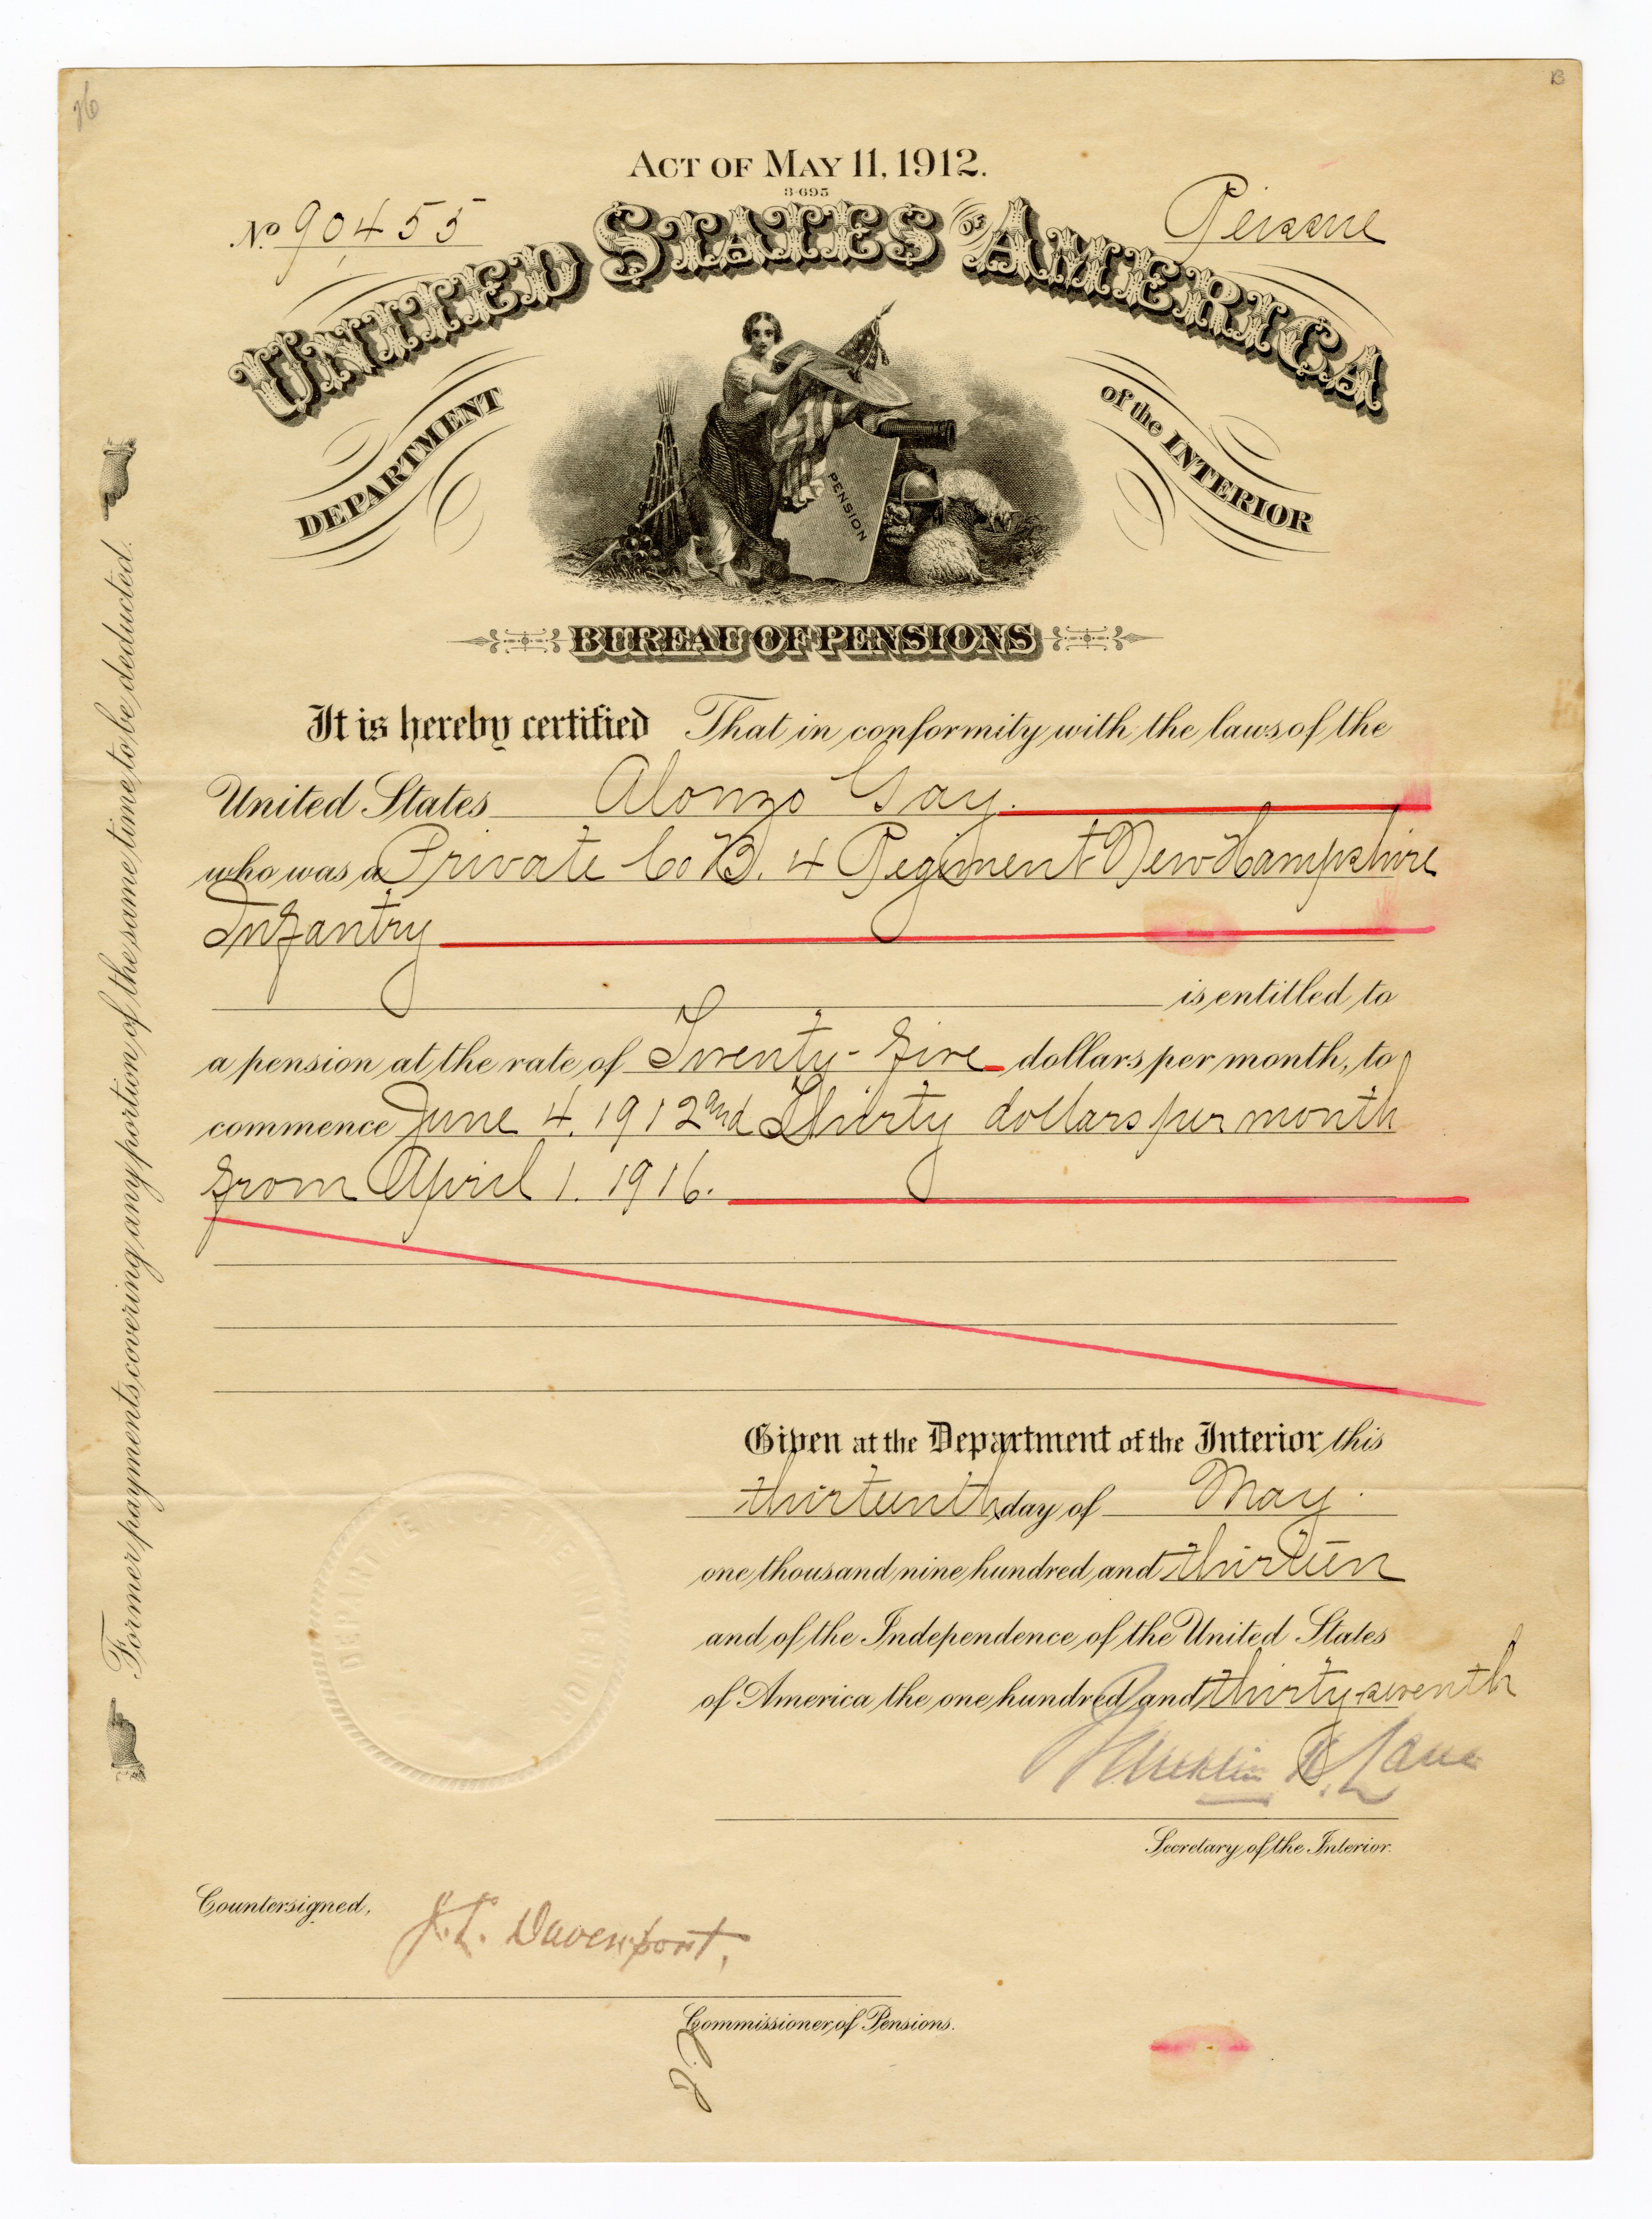 B
ACT OF MAY 11, 1912.
3-695
No 90455
Reissue
UNITED STATES OF AMERICA
DEPARTMENT of the INTERIOR
PENSION
BUREAU OF PENSIONS
It is hereby certified That in conformity with the laws of the
United States Alonzo Gay.
who was a Private Co B. 4 Regiment New Hampshire
Infantry
is entitled to
a pension at the rate of Twenty-five dollars per month, to
commence June 4. 1912 and Thirty dollars per month
from April 1. 1916.
Given at the Department of the Interior this
thirteenth day of May.
one thousand nine hundred and thirteen
and of the Independence of the United States
of America the one hundred and thirty-seventh
Franklin K. Lane
Secretary of the Interior.
Countersigned,
J. L. Davenport,
Commissioner of Pensions.
Former payments covering any portion of the same time to be deducted.